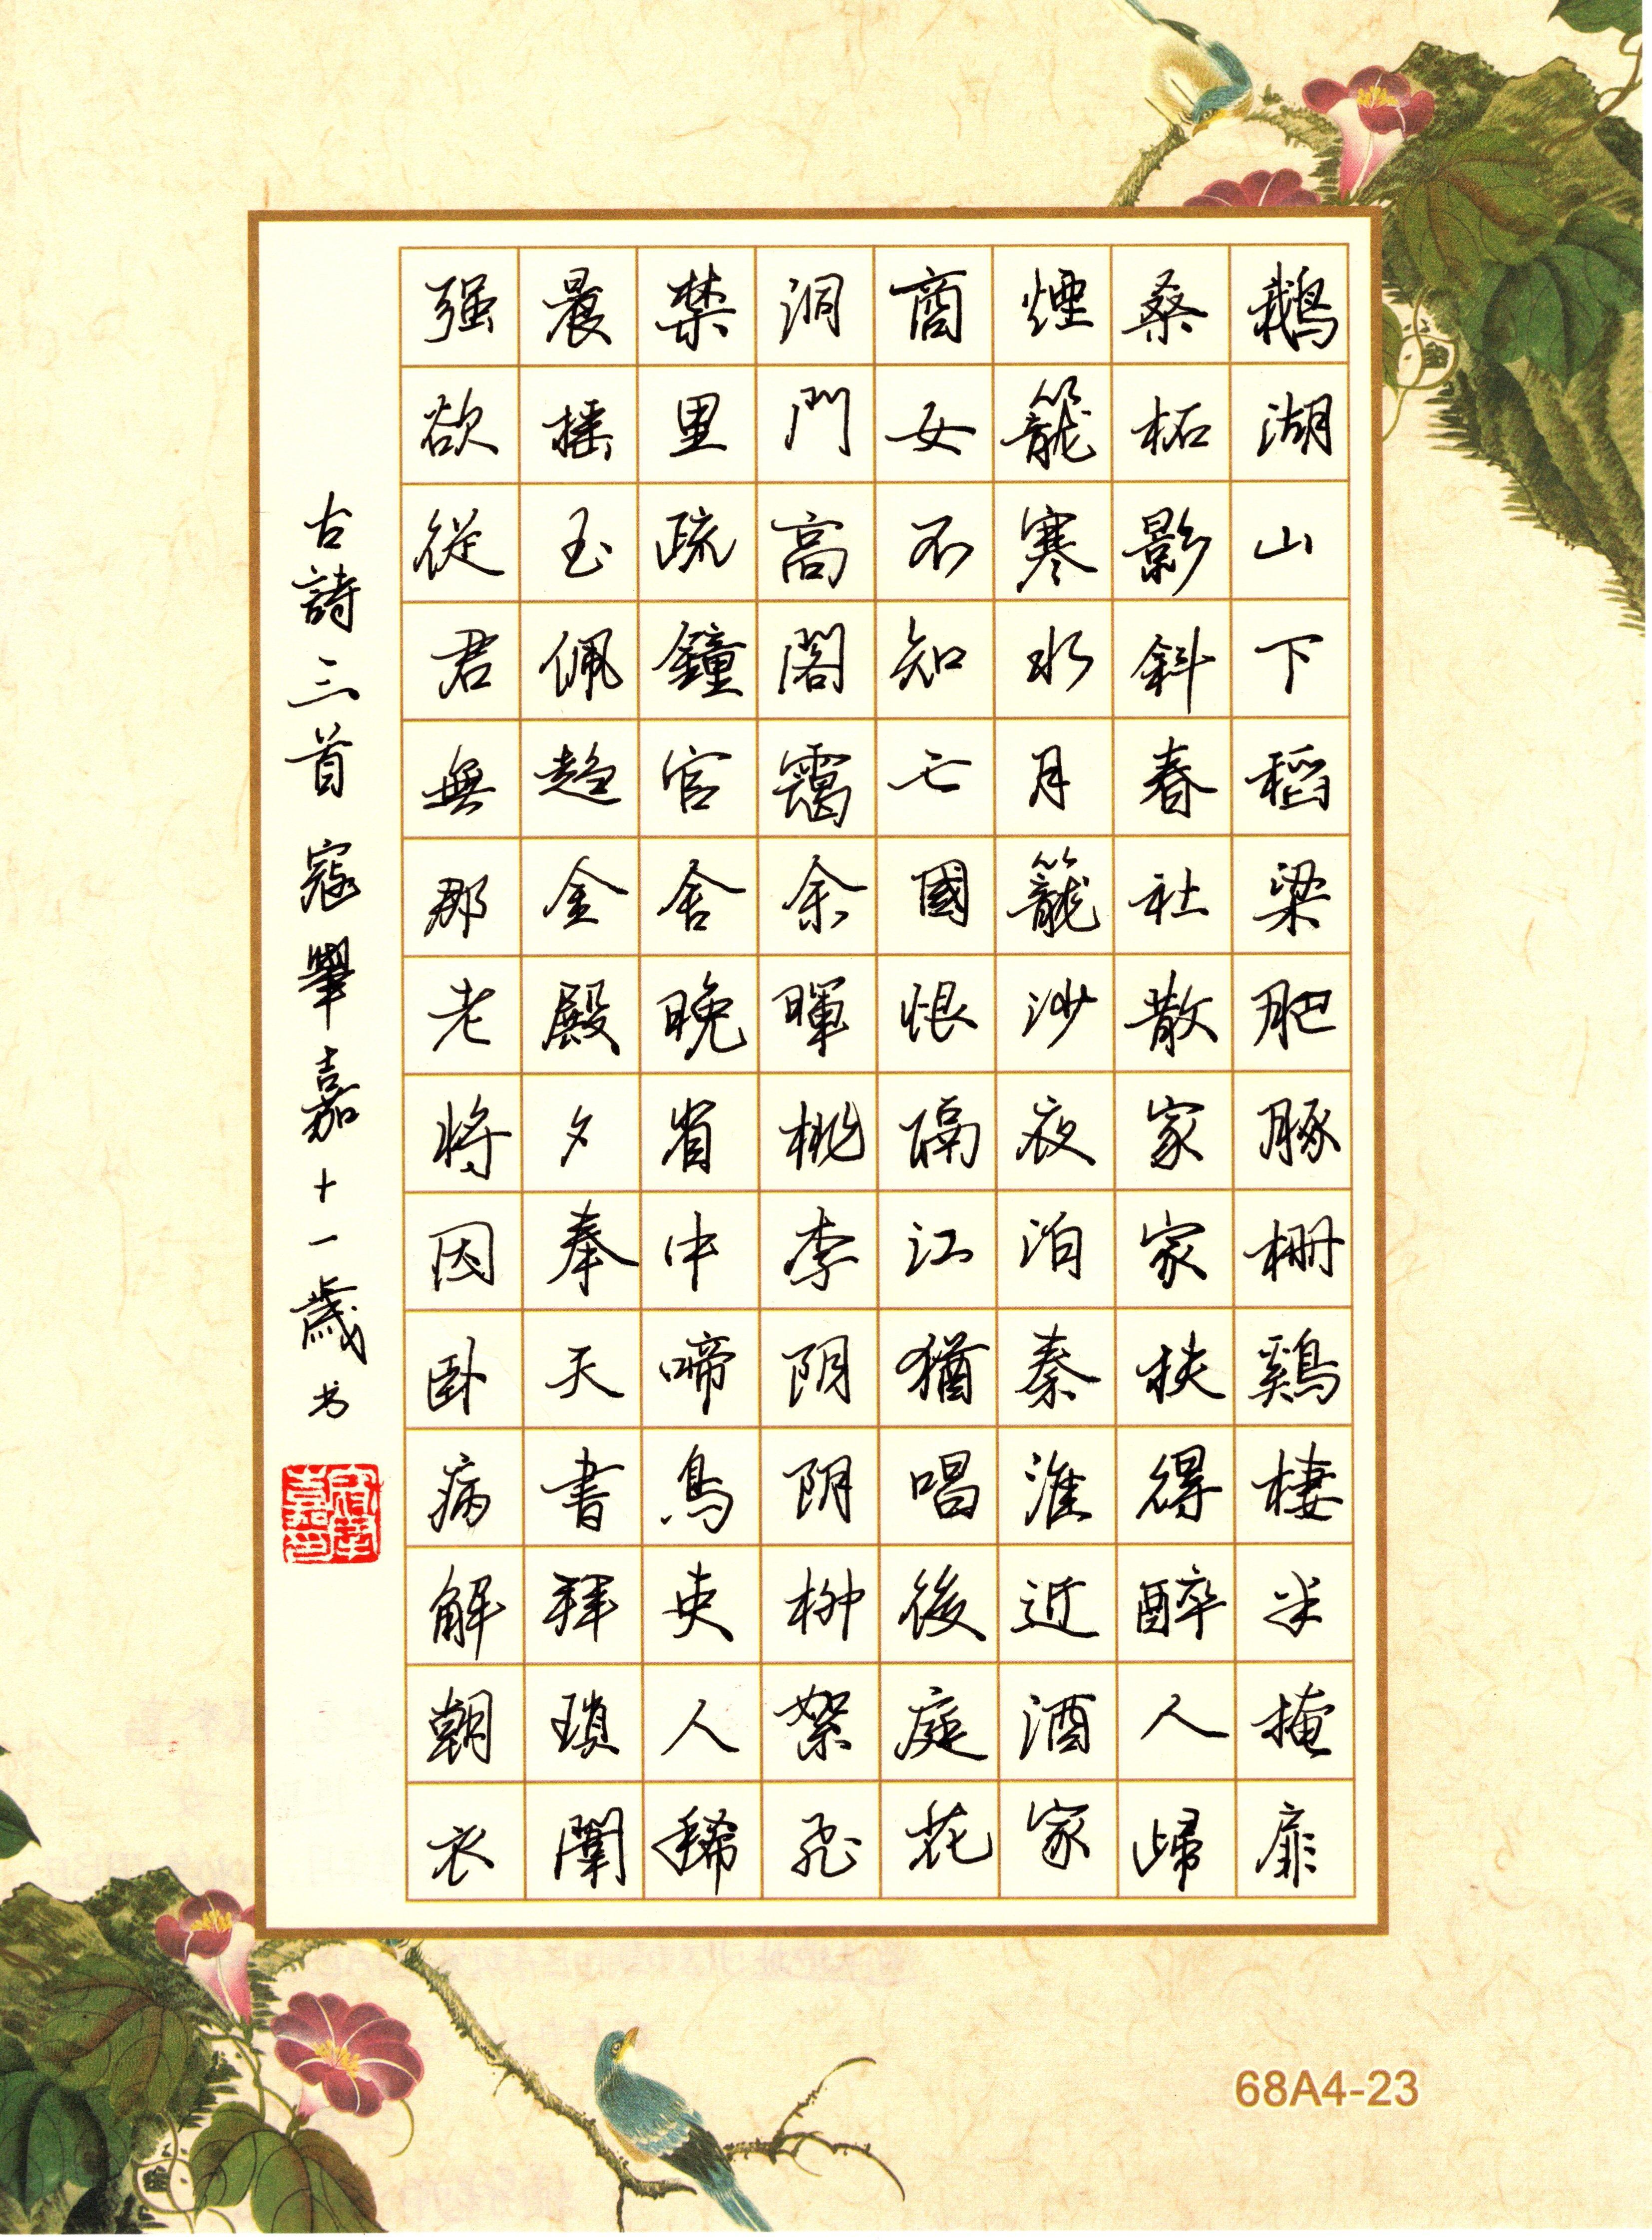 鵝湖山下稻梁肥豚栅鷄棲半掩扉
桑柘影斜春社散家家扶得醉人歸
煙籠寒水月籠沙夜泊秦淮近酒家
商女不知亡國恨隔江猶唱後庭花
洞門高閣靄余暉桃李阴阴柳絮飛
禁里疏鐘官舍晚省中啼鳥吏人稀
晨摇玉佩趨金殿夕奉天書拜瑣闈
强欲從君無那老將因卧病解朝衣
古詩三首 寇舉嘉十一歲书
68A4-23